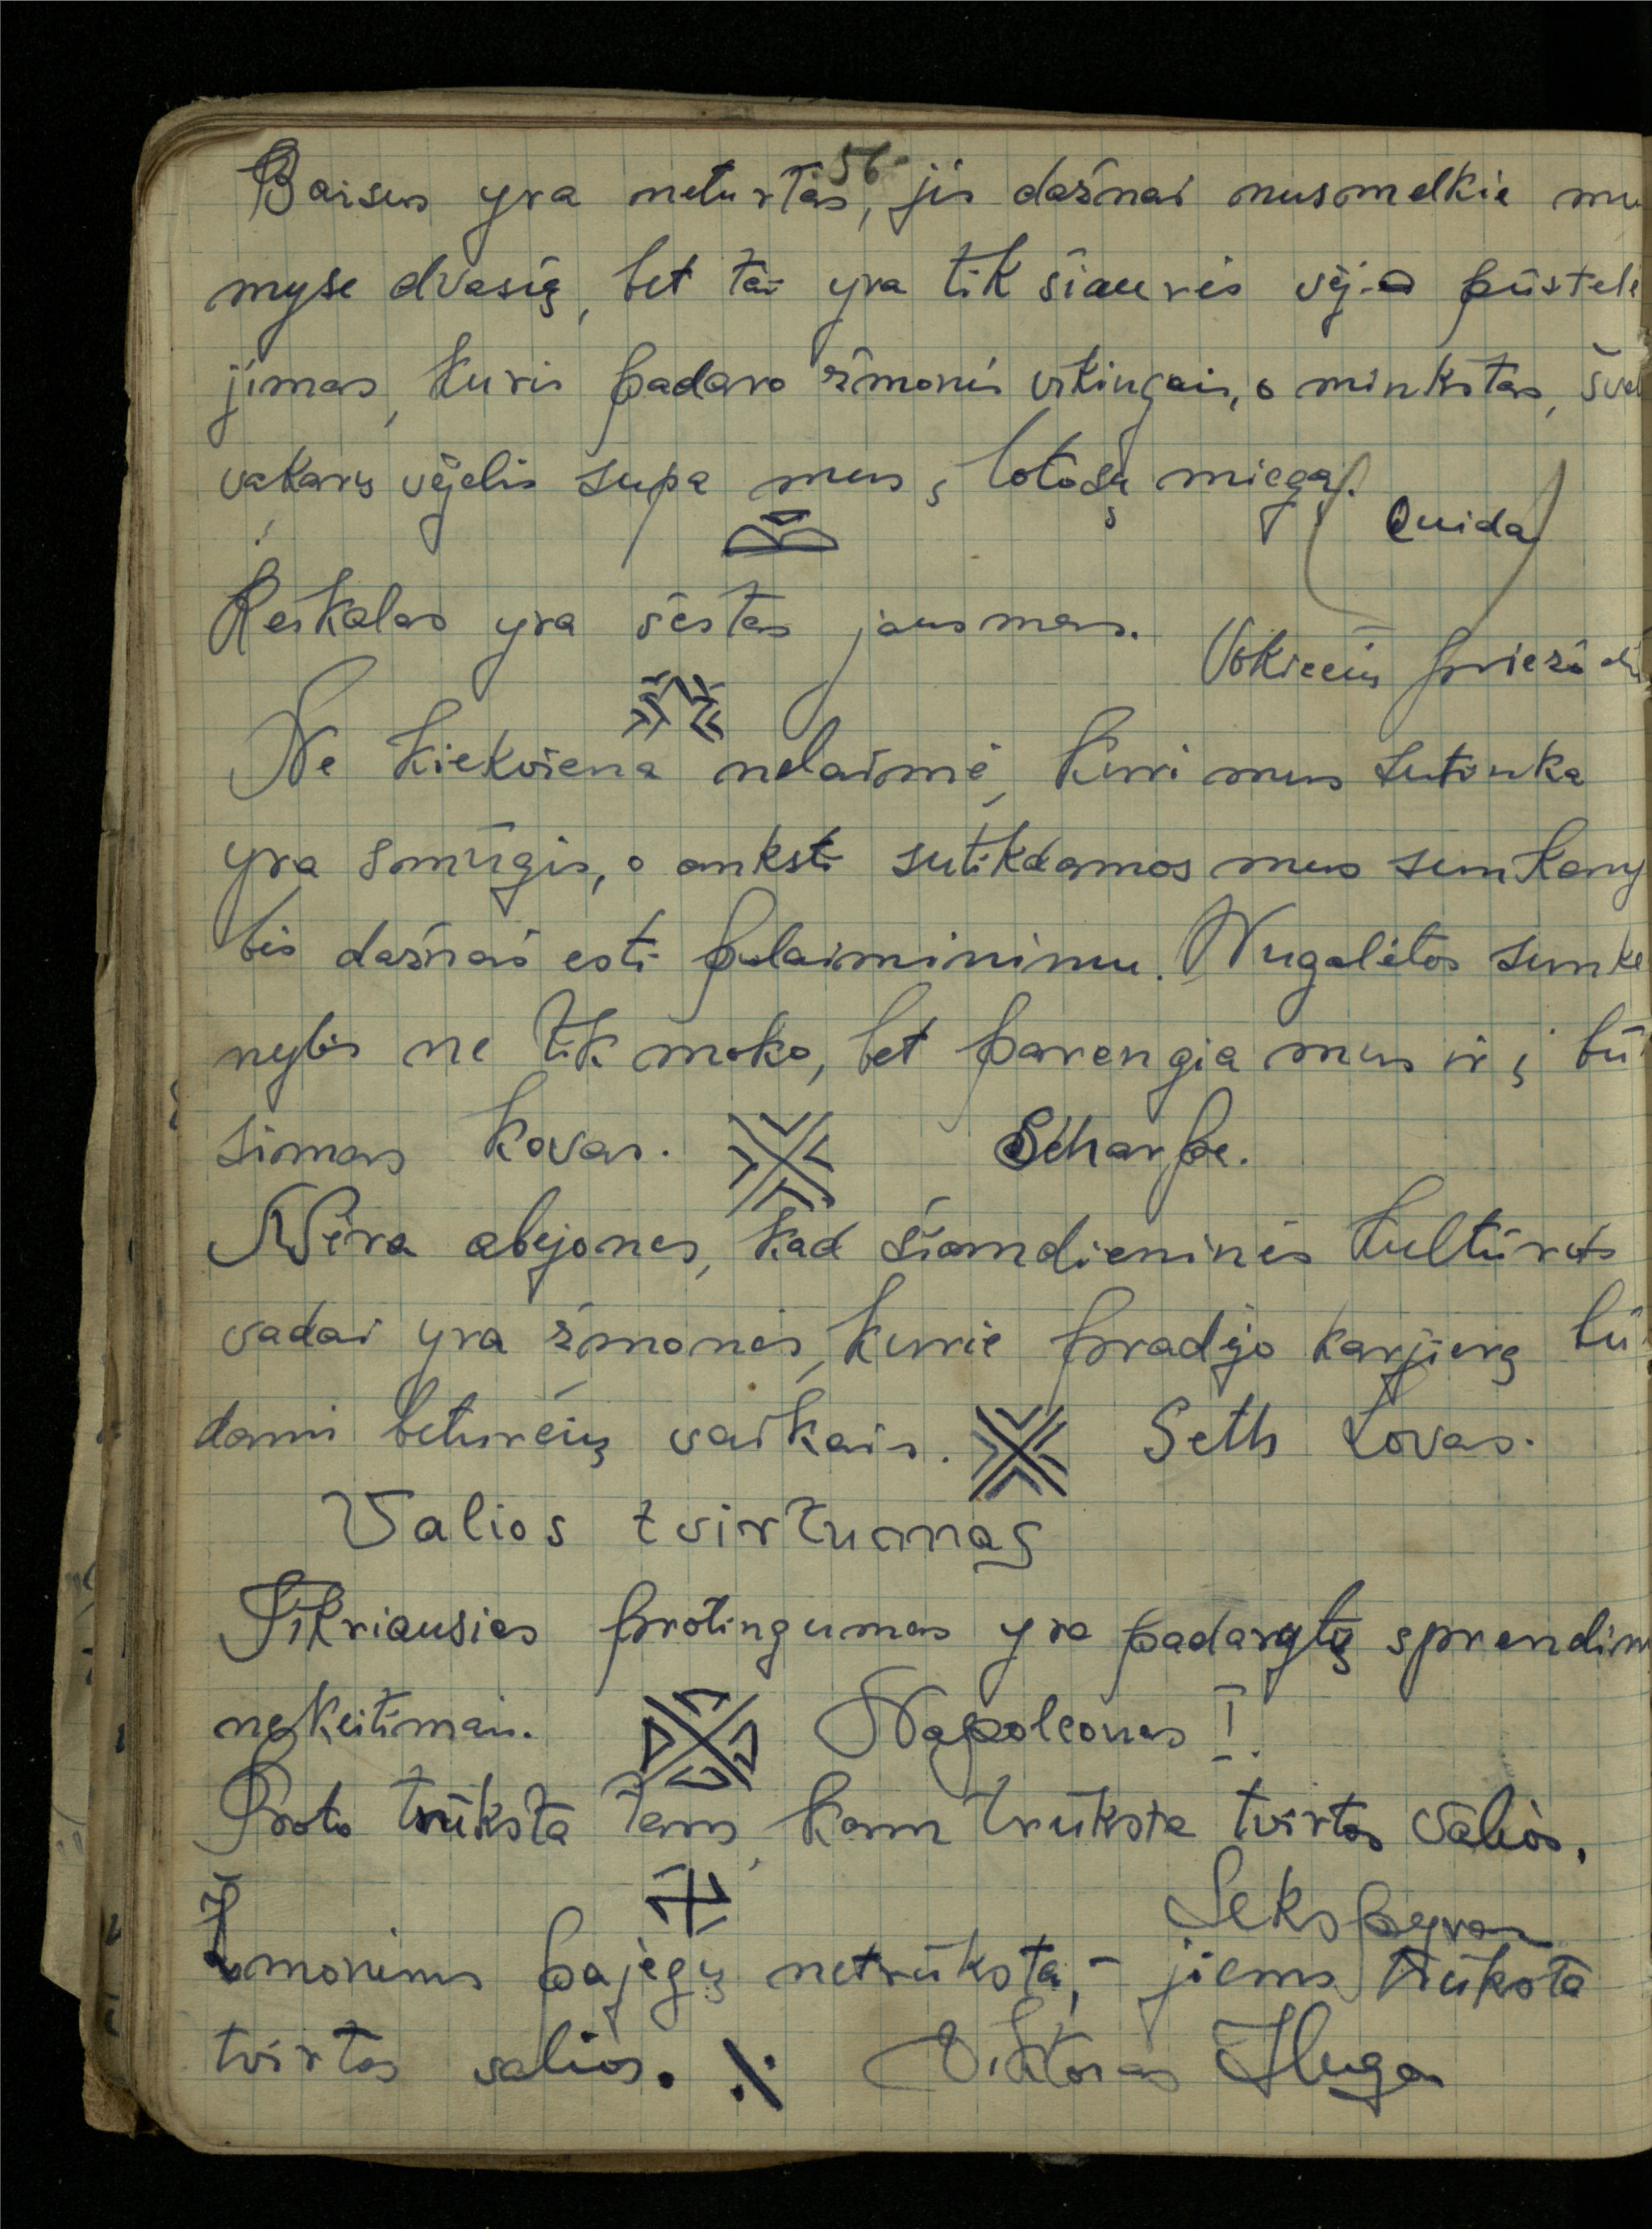 56
Baisus yra neturtas, jis dažnai nusmelkia mu
myse dvasią, bet tai yra tik šiaurės vėjo pūstelė
jimas, kuris padaro žmonės vikingais, o minkštas, šve
vakarų vėjelis supa mus į lotosų miegą.
Ouida
Reikalas yra šeštas jausmas.
Vokiečių priežo
Ne kiekviena nelaimė, kuri mus sutinka
yra smūgis, o anksti sutikdamos mus sunkeny
bės dažnai esti palaiminimu. Nugalėtos sunke
nybės ne tik moko, bet parengia mus ir į bū
simas kovas.
Scharpe.
Nėra abejonės, kad šiamdieninės kultūros
vadai yra žmonės, kurie pradėjo karjierą bū
dami beturčių vaikais.
Seth Lovas.
Valios tvirtumas
Tikriausias protingumas yra padarytų sprendim
nekeitimai.
Napoleonas I.
Proto trūksta tam, kam trūksta tvirtos valios.
Šekspyras
Žmonėms pajėgų netrūksta, - jiems trūksta
tvirtos valios.
Viktoras Hugo